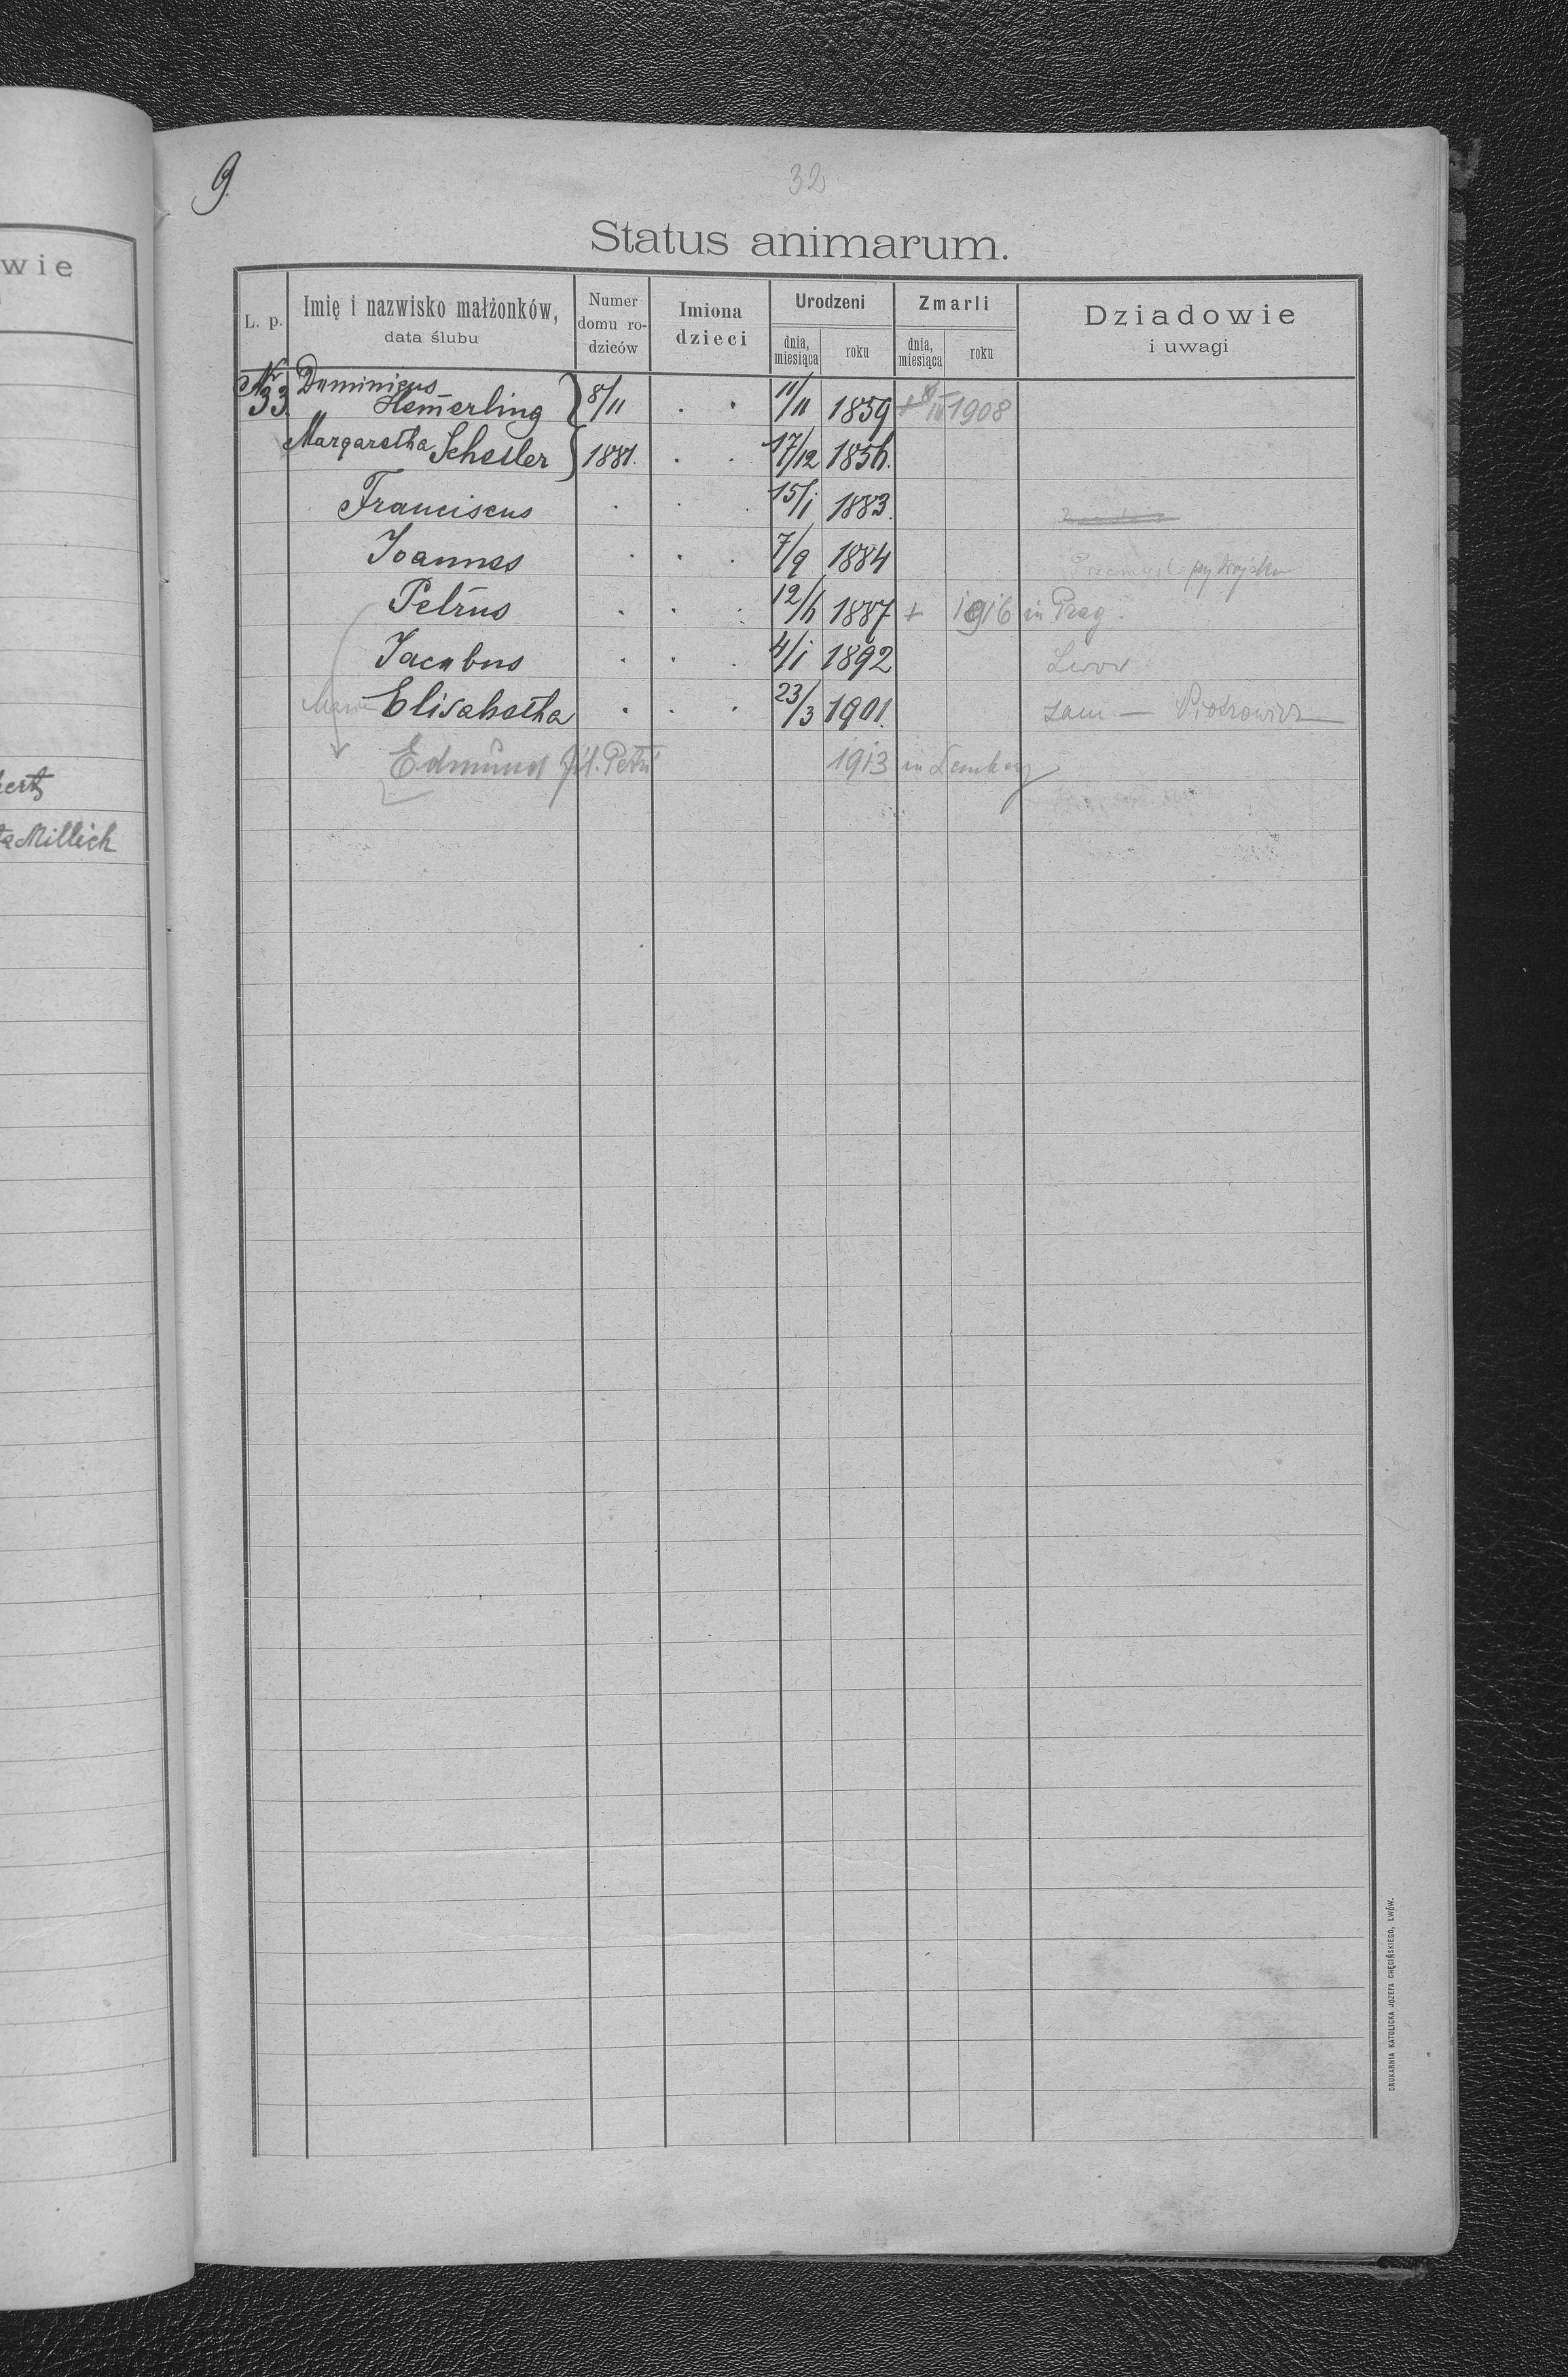 wie
ertz
ta Millich
9.
32
Status animarum.
L. p. Imię i nazwisko małżonków, data ślubu Numer domu rodziców Imiona dzieci Urodzeni dnia, miesiąca roku Zmarli dnia, miesiąca roku Dziadowie i uwagi
Nr 33. Dominicus Hem̄erling 8/11 . . 11/11 1859 + 8/IV 1908
Margaretha Schesler 1881. . . 17/12 1856.
Franciscus . . . 15/i 1883.
Joannes . . . 7/9 1884 Przemyśl przy Wojsku
Petrus . . . 12/4 1887 + 1916 in Prag.
Jacobus . . . 4/i 1892 Lwow
Maria Elisabetha . . . 23/3 1901. zam — Piotrowicz
Edmund fil. Petri 1913 in Lemberg
DRUKARNIA KATOLICKA JÓZEFA CHĘCIŃSKIEGO, LWÓW.